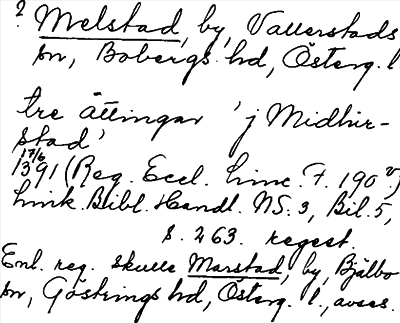 ? Melstad, by, Vallerstads
sn, Bobergs hd, Österg. l
tre ättingar 'j Midhir-
stad'
17/6
1391 (Reg. Eccl. Linc. F. 190 v)
Link. Bibl. Handl. NS. 3, Bil. 5,
s. 263. regest.
Enl. reg. skulle Marstad, by, Bjälbo
sn, Göstrings hd, Österg. l., avses.